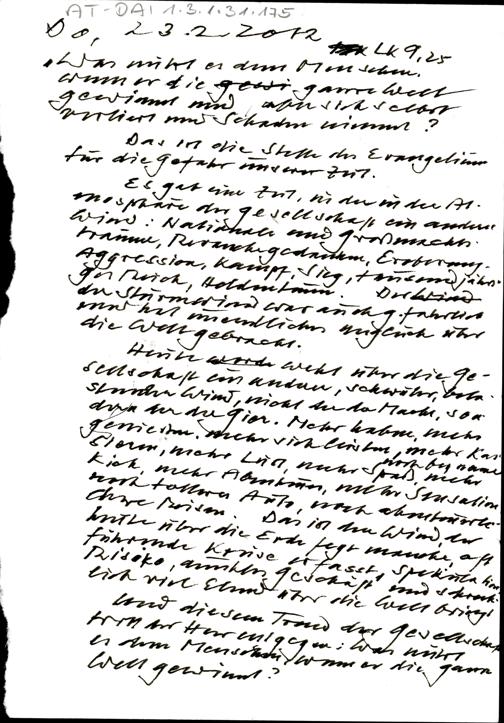 AT-DAI 1.3.1.31.175
Do, 23.2.2012
Lk 9,25
„Was nützt es dem Menschen,
wenn er die ganze Welt
gewinnt und aber sich selbst
verliert und Schaden nimmt?
Das ist die Stelle des Evangeliums
für die Gefahr unserer Zeit.
Es gab eine Zeit, in der in der At-
mosphäre der Gesellschaft ein anderer
Wind: Nationale und Großmachts-
träume, Revanchegedanken, Eroberung,
Aggression, Kampf, Sieg, tausendjähri-
ges Reich, Heldentum. Der
Sturmwind war auch gefährlich
und hat unendliches Unglück über
die Welt gebracht.
Heute weht über die Ge-
sellschaft ein anderer,
Wind, nicht der der Macht, son-
dern der der Gier. Mehr haben, mehr
genießen, mehr sich leisten, mehr
mehr Lust, mehr Spaß, mehr
noch
mehr Abenteuer, mehr Sensation
noch tolleres Auto, noch
Reisen. Das ist der Wind, der
heute über die Erde fegt manche, oft
führende Kreise erfasst,
Risiko, Geschäft und
lich viel Elend über die Welt bringt
Und diesem Trend der Gesellschaft
tritt der Herr entgegen: Was nützt
es dem Menschen, wenn er die ganze
Welt gewinnt?